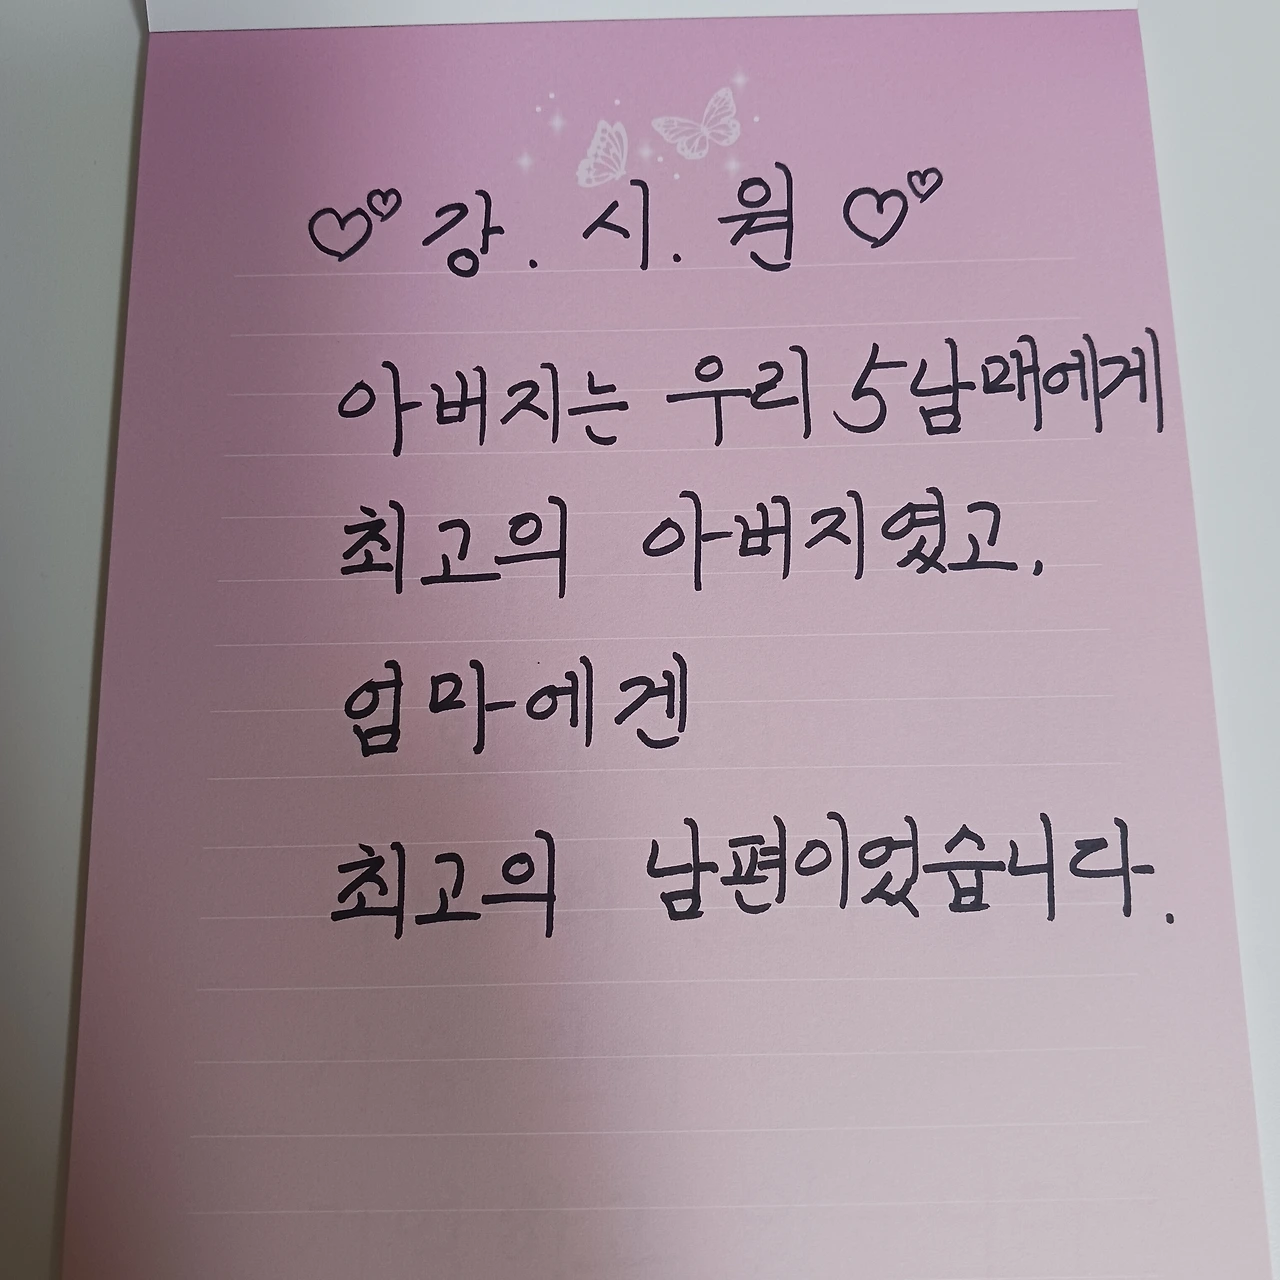 ♡♡강.시.원♡♡
아버지는 우리 5남매에게
최고의 아버지였고.
엄마에겐
최고의 남편이었습니다.